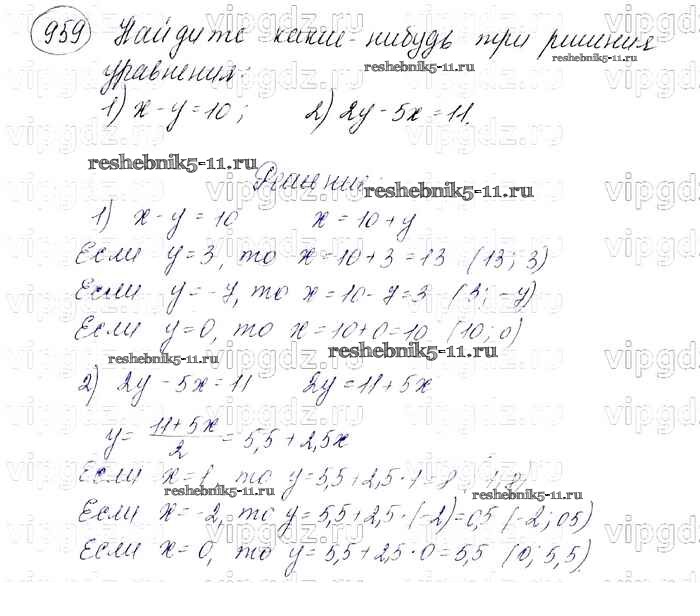 959 Найдите какие-нибудь три решения
уравнения:
1) x - y = 10; 2) 2y - 5x = 11.
Решение:
1) x - y = 10 x = 10 + y
Если y = 3, то x = 10 + 3 = 13 (13; 3)
Если y = -7, то x = 10 - 7 = 3 (3; -7)
Если y = 0, то x = 10 + 0 = 10 (10; 0)
2) 2y - 5x = 11 2y = 11 + 5x
y = (11 + 5x)/2 = 5,5 + 2,5x
Если x = 1, то y = 5,5 + 2,5 · 1 = 8 (1; 8)
Если x = -2, то y = 5,5 + 2,5 · (-2) = 0,5 (-2; 0,5)
Если x = 0, то y = 5,5 + 2,5 · 0 = 5,5 (0; 5,5).
reshebnik5-11.ru
reshebnik5-11.ru
reshebnik5-11.ru
reshebnik5-11.ru
reshebnik5-11.ru
reshebnik5-11.ru
reshebnik5-11.ru
reshebnik5-11.ru
vipgdz.ru